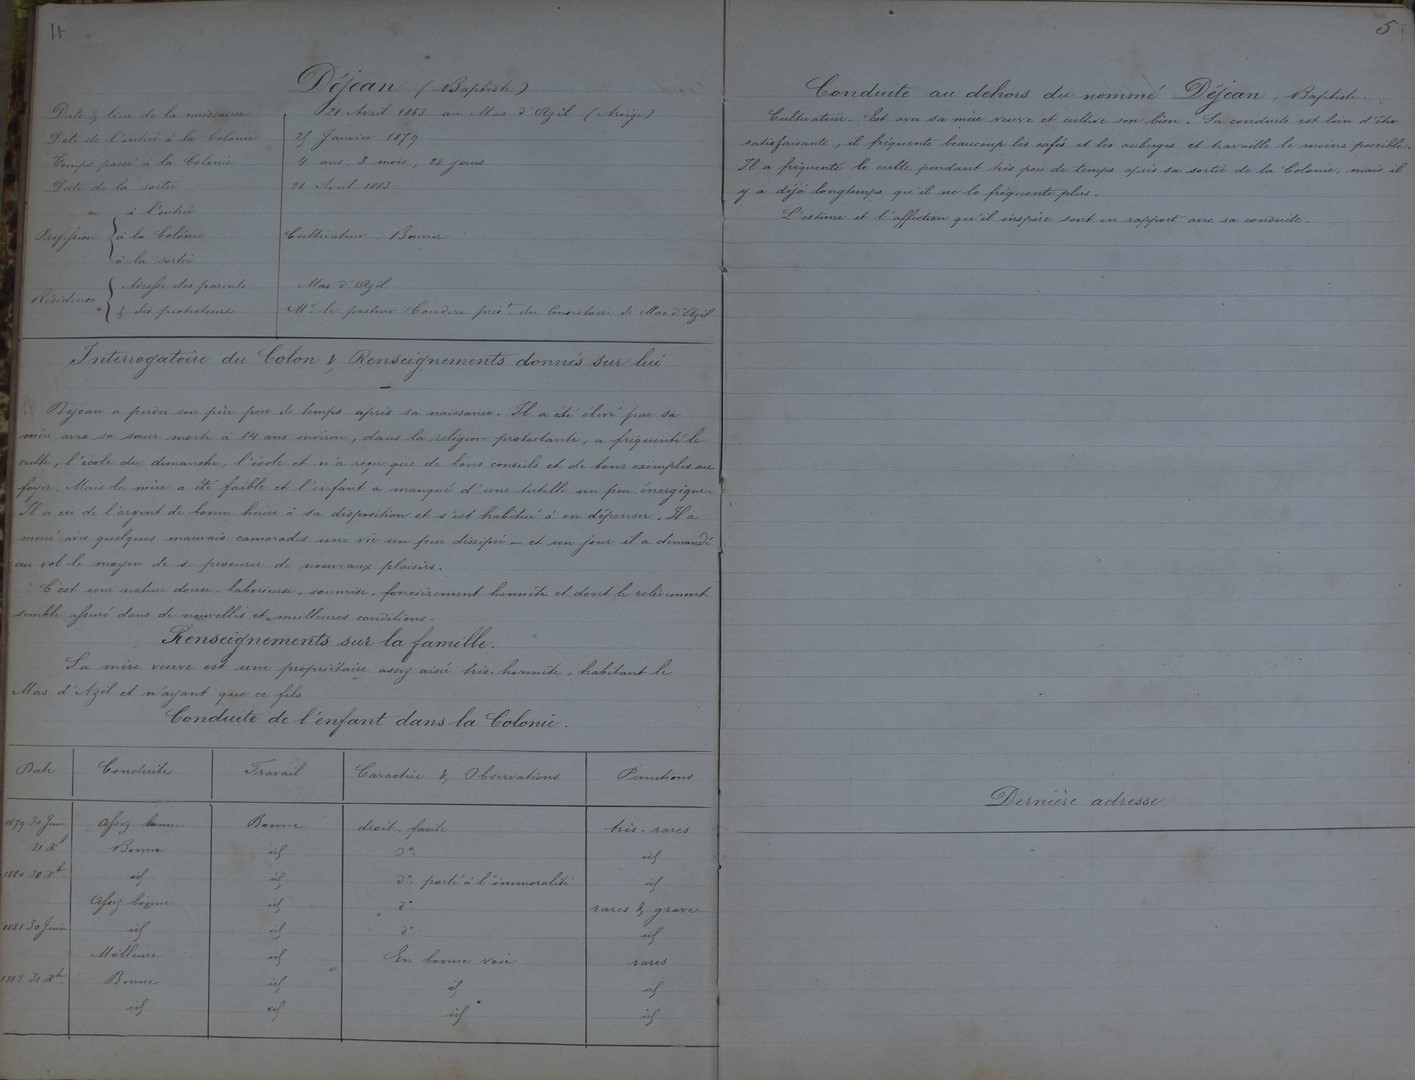 4
Déjean (Baptiste)
Date & lieu de la naissance 21 Avril 1863 au Mas d'Azil (Ariège)
Date de l'entrée à la Colonie 25 Janvier 1879
Temps passé à la Colonie 4 ans, 3 mois, 28 jours
Date de la sortie 21 Avril 1883
Profession
à l'entrée
à la Colonie Cultivateur, Bouvier
à la sortie
Résidence
Adresse des parents Mas d'Azil
& des protecteurs Mr. le pasteur prést. du Consistoire de Mas d'Azil
Interrogatoire du Colon & Renseignements donnés sur lui
Dejean a perdu son père peu de temps après sa naissance. Il a été élevé par sa
mère avec sa sœur morte à 14 ans environ, dans la religion protestante, a fréquenté le
culte, l'école du dimanche, l'école et n'a reçu que de bons conseils et de bons exemples au
foyer. Mais la mère a été faible et l'enfant a manqué d'une tutelle un peu énergique.
Il a eu de l'argent de bonne heure à sa disposition et s'est habitué à en dépenser. Il a
mené avec quelques mauvais camarades une vie un peu dissipée — et un jour il a demandé
au vol le moyen de se procurer de nouveaux plaisirs.
C'est une nature douce, laborieuse, soumise, foncièrement honnête et dont le relèvement
semble assuré dans de nouvelles et meilleures conditions.
Renseignements sur la famille.
Sa mère veuve est une propriétaire assez aisée très-honnête, habitant le
Mas d'Azil et n'ayant que ce fils
Conduite de l'enfant dans la Colonie.
Date Conduite Travail Caractère & Observations Punitions
1879 30 Juin Assez bonne Bonne droit, facile très-rares
31 Xb Bonne id do. id
1880 30 Xb id id do. porté à l'immoralité id
Assez bonne id do rares & graves
1881 30 Juin id id do id
Meilleure id En bonne voie rares
1882 31 Xb Bonne id id id
id id id id
5
Conduite au dehors du nommé Déjean, Baptiste.
Cultivateur. Est avec sa mère veuve et cultive son bien. Sa conduite est loin d'être
satisfaisante, il fréquente beaucoup les cafés et les auberges et travaille le moins possible.
Il a fréquenté le culte pendant très peu de temps après sa sortie de la Colonie, mais il
y a déjà longtemps qu'il ne le fréquente plus.
L'estime et l'affection qu'il inspire sont en rapport avec sa conduite.
Dernière adresse